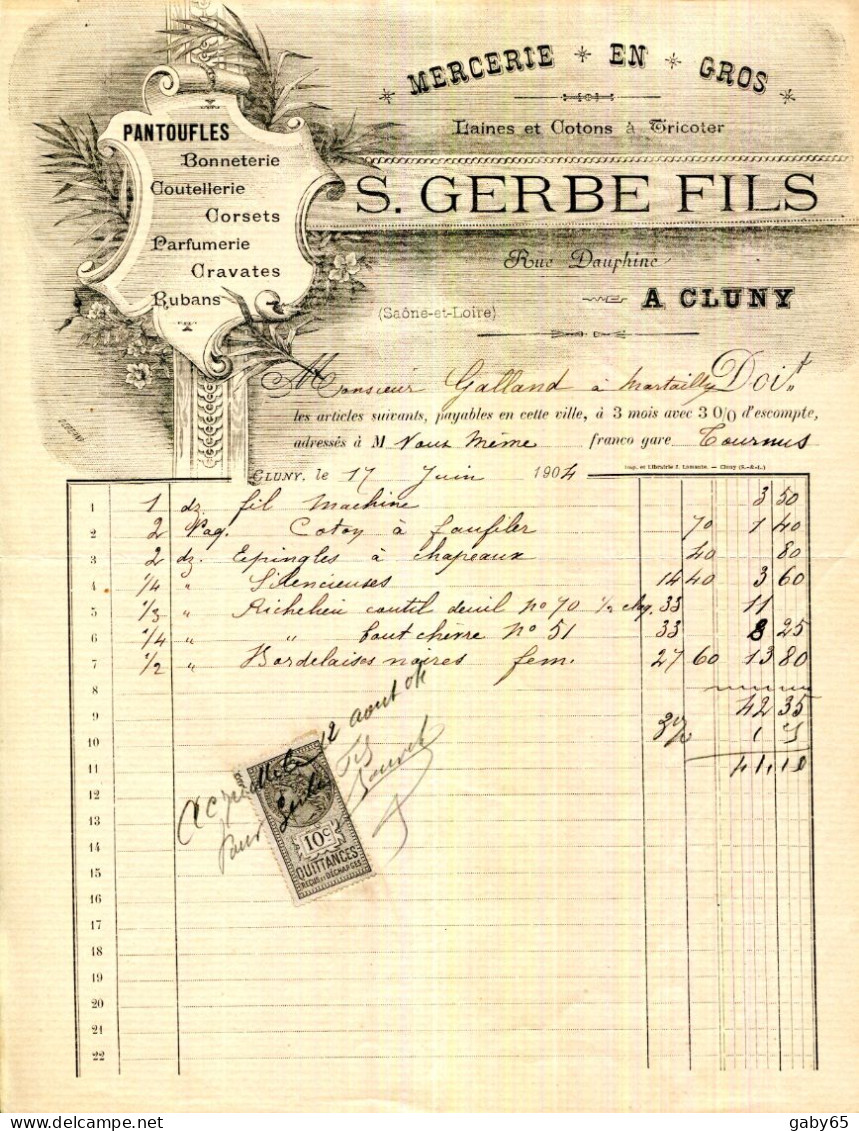 MERCERIE * EN * GROS
Laines et Cotons à Tricoter
PANTOUFLES
Bonneterie
Coutellerie
Corsets
Parfumerie
Cravates
Rubans
S. GERBE FILS
Rue Dauphine
A CLUNY
(Saône-et-Loire)
Monsieur Galland à Martailly Doit
les articles suivants, payables en cette ville, à 3 mois avec 3 0/0 d'escompte,
adressés à M Vous Même franco gare Tournus
Imp. et Librairie — Cluny (S.-&-L.)
CLUNY, le 17 Juin 1904
1 1 dz. fil Machine 3 50
2 2 Paq. Coton à faufiler 70 1 40
3 2 dz. Epingles à chapeaux 40 80
4 1/4 " Silencieuses 14 40 3 60
5 1/3 " Richelieu coutil deuil no 70 1/2 33 11
6 1/4 " " bout chèvre No 51 33 8 25
7 1/2 " Bordelaises noires fem. 27 60 13 80
8
9 42 35
10 3% 1 25
11 41,10
12
13
14
15
16
17
18
19
20
21
22
12 aout 04
Pour Gerbe Fils
10c
QUITTANCES
REÇUS ET DÉCHARGES
gaby65